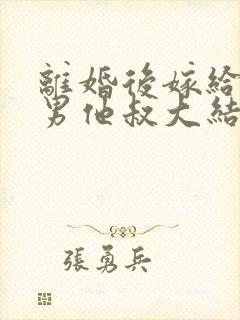 離婚後嫁給
男他叔大結
張勇兵